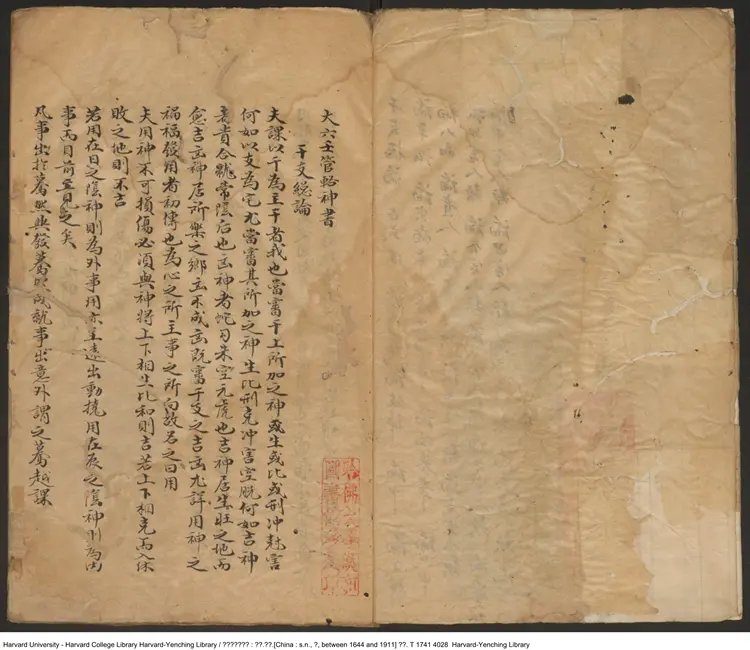 大六壬管輅神書
干支總論
夫課以干為主干者我也當審干上所加之神或生或比或刑冲尅害
何如以支為宅尤當審其所加之神生比刑克冲害空脫何如吉神
者貴合龍常陰后也凶神者蛇勾朱空元虎也吉神居生旺之地而
愈吉凶神居所樂之鄉亦不成凶既審干支之吉凶尤詳用神之
禍福發用者初傳也為心之所主事之所向故名之曰用
夫用神不可損傷必須與神將上下相生比和則吉若上下相克而入休
敗之地則不吉
若用在日之陰神則為外事用亦主遠出動撓用在辰之陰神則為內
事而目前立見之矣
凡事出於驀然與發驀然成就事出意外謂之驀越課
Harvard University - Harvard College Library Harvard-Yenching Library / ??????? : ??.??.[China : s.n., ?, between 1644 and 1911] ??. T 1741 4028 Harvard-Yenching Library